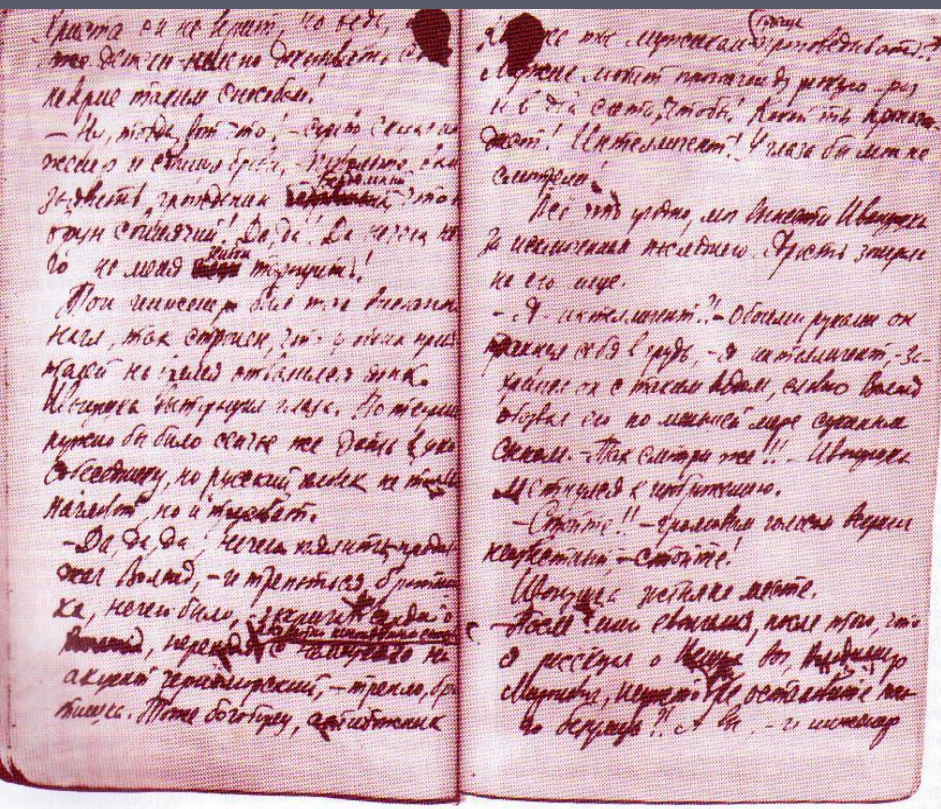 Христа он не верит, но ведь,
же
покорие таким способом!
— Ну, тогда вот что! — сухо сказал ин
женер и сдвинул брови, — позвольте вам
заявить, гражданин Бездомный, что
врун свинячий! Да, да! Да нечего на
го на меня зенки таращить!
Тон инженера был так внезапно
нагл, так странен, что у обоих прия
телей на время отвалился язык.
Иванушка вытаращил глаза. По теории
нужно бы было сейчас же дать в ухо
собеседнику, но русский человек не только
нагловат, но и трусоват.
— Да, да, да, нечего пялить, — продол
жал Воланд, — и трепаться, братиш
ка, нечего было, — закричал сердито
переходя
акцент черноморский, — трепло, бра
тишка. Тоже богоборец, антибожник
же ты мужикам будешь проповедывать?!
Мужик любит пропаганду резкую — раз
и в два счета, чтобы! Какой ты пропаган
дист! Интеллигент! У глаза бы мои не
смотрели.
Все что угодно, мог вынести Иванушка
за исключением последнего. Ярость заиграла
на его лице.
— Я — интеллигент?! — Обеими руками он
себя в грудь, — я интеллигент, — за-
хрипел он с таким видом, словно Воланд
обозвал его по меньшей мере сукиным
сыном. — Так смотри же!! — Иванушка
метнулся к изображению.
— Стойте!! — громовым голосом вскричал
неизвестный, — стойте!
Иванушка застыл на месте.
— После моего евангелия, после того, что
я рассказал о Иешуа вы, Владимир
Миронович, неужто не остановите юно
го безумца?! А вы, — и инженер